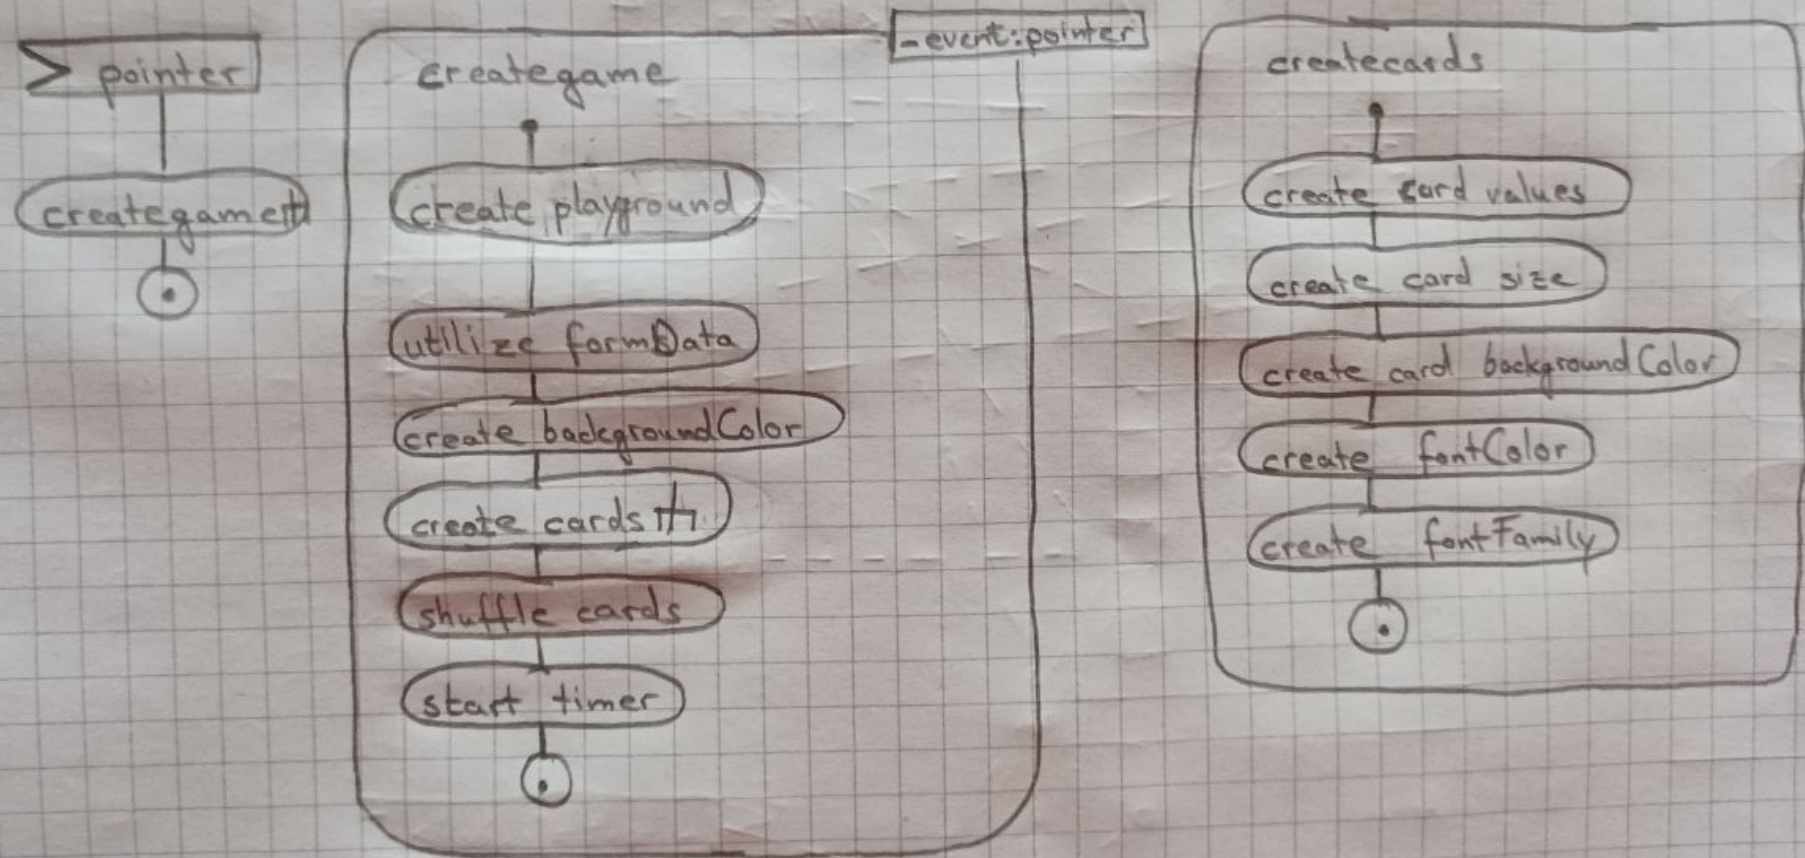 pointer
creategame
creategame
-event:pointer
create playground
utilize formData
create backgroundColor
create cards
shuffle cards
start timer
createcards
create card values
create card size
create card backgroundColor
create fontColor
create fontFamily